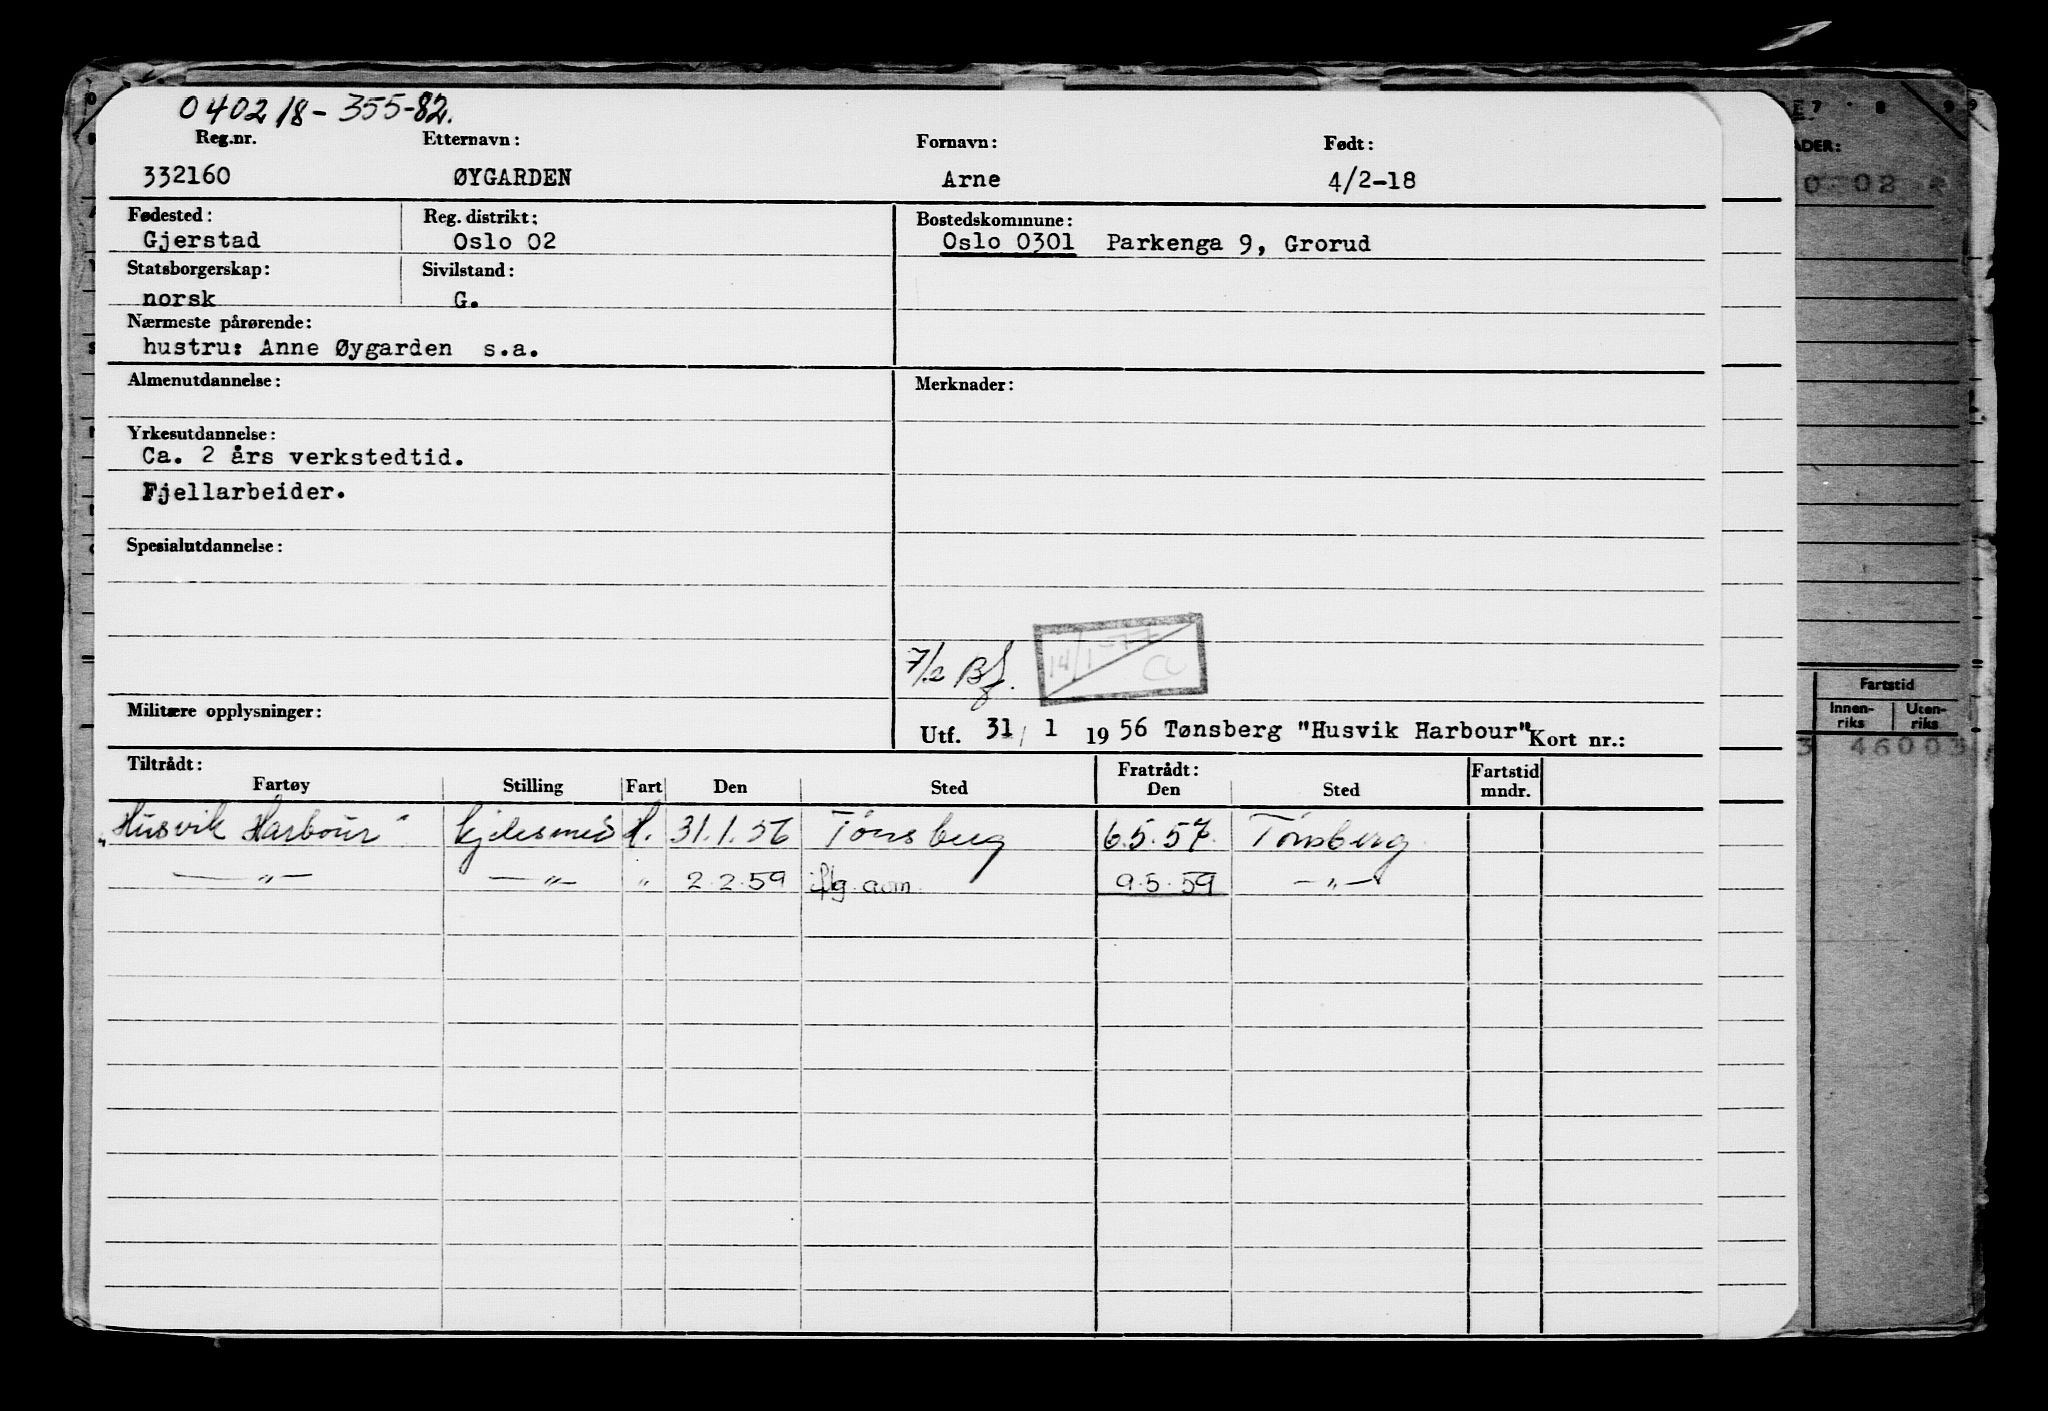 040218-355-82.
Reg.nr. Etternavn: Fornavn: Født:
332160 ØYGARDEN Arne 4/2-18
Fødested: Reg. distrikt: Bostedskommune:
Gjerstad Oslo 02 Oslo 0301 Parkenga 9, Grorud
Statsborgerskap: Sivilstand:
norsk G.
Nærmeste pårørende:
hustru: Anne Øygarden s.a.
Almenutdannelse: Merknader:
Yrkesutdannelse:
Ca. 2 års verkstedtid.
Fjellarbeider.
Spesialutdannelse:
14/1-77
7/2 Bf.
Militære opplysninger:
Utf. 31/1 1956 Tønsberg "Husvik Harbour" Kort nr.:
Tiltrådt: Fratrådt: Fartstid
Fartøy Stilling Fart Den Sted Den Sted mndr.
"Husvik Harbour" kjelesmed H. 31.1.56 Tønsberg 6.5.57. Tønsberg
—"— —"— " 2.2.59 flg. am. 9.5.59 —"—
7 8 9
ADER:
0 02
Fartstid
Innen-riks Uten-riks
3 46003